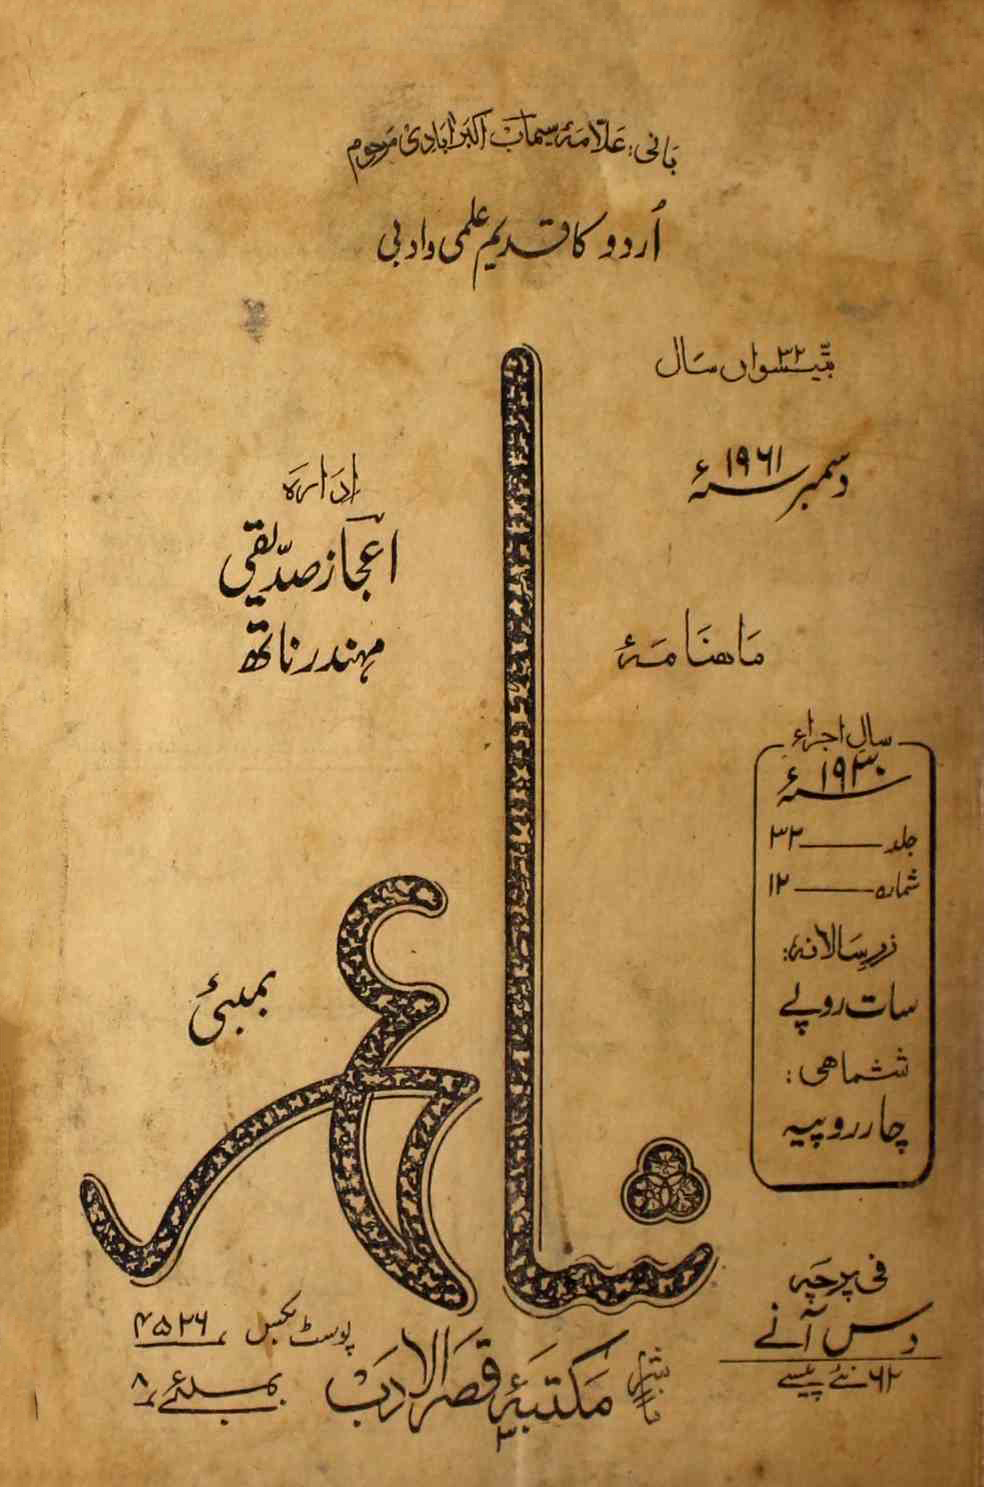 بانی: علامہ سیماب اکبرآبادی مرحوم
اُردو کا قدیم علمی و ادبی
بتّیسواں ۳۲ سال
دسمبر ۱۹۶۱ء
ادارہ
اعجاز صدّیقی
مہندر ناتھ
ماہنامۂ
شاعر
بمبئی
سالِ اجراء
۱۹۳۰ء
جلد ۳۲
شمارہ ۱۲
زرِ سالانہ:
سات روپے
ششماھی:
چار روپیہ
فی پرچہ
دس آنے
۶۲ نئے پیسے
ناشر
مکتبۂ قصر الادب
پوسٹ بکس ۴۵۲۶
بمبئی ۸
۳